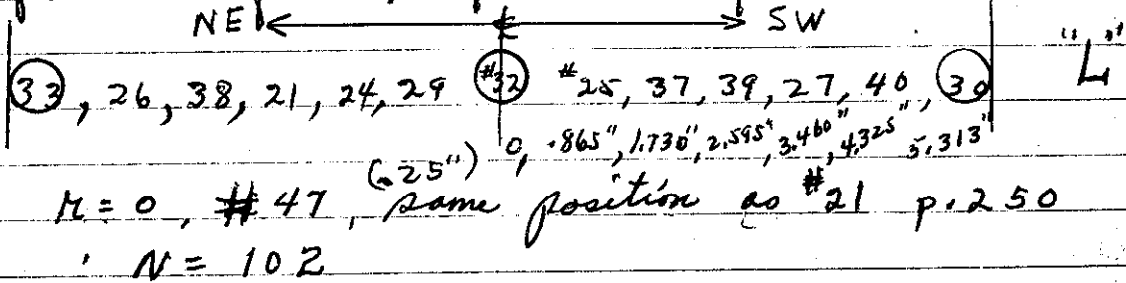 NE SW
33, 26, 38, 21, 24, 29 #32 #25, 37, 39, 27, 40, 30 "L"
(.25") 0, .865", 1.730", 2.595", 3.460", 4.325" 5.313"
r = 0, #47, same position as #21 p. 250
N = 102